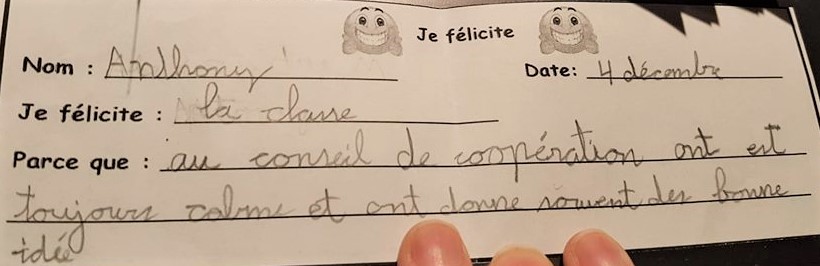 Je félicite
Nom : Anthony Date: 4 décembre
Je félicite : la classe
Parce que : au conseil de coopération ont est
toujours calme et ont donne souvent des bonne
idée